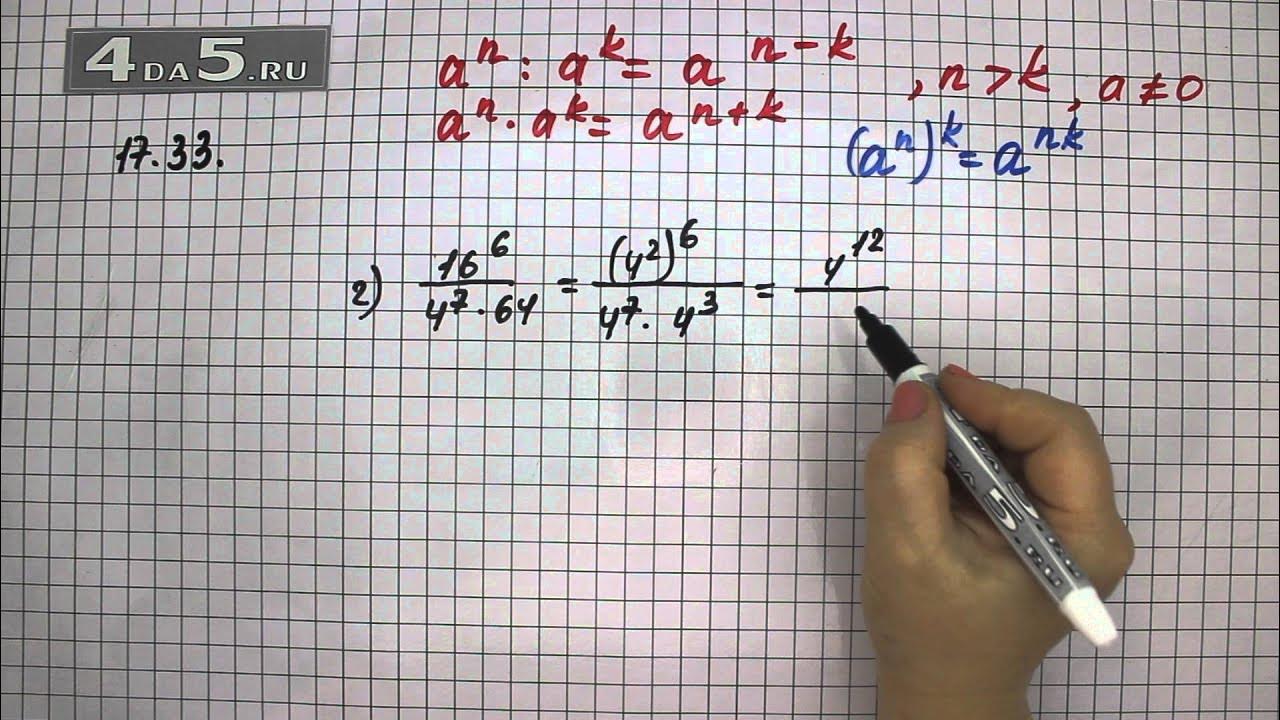 4DA5.RU
aⁿ : aᵏ = aⁿ⁻ᵏ, n > k, a ≠ 0
aⁿ · aᵏ = aⁿ⁺ᵏ
(aⁿ)ᵏ = aⁿᵏ
17.33.
2) 16⁶ / (4⁷ · 64) = (4²)⁶ / (4⁷ · 4³) = 4¹² /
5.RU